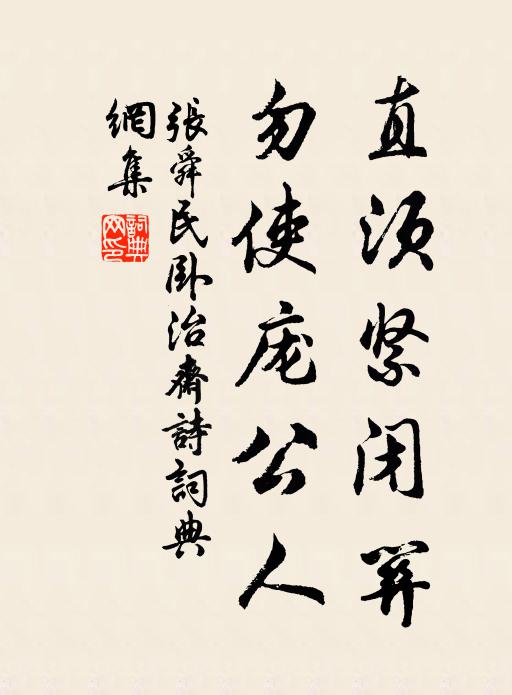 直須緊閉關
勿使庞公人
張舜民卧治齋詩詞典
網集
詞典
网印